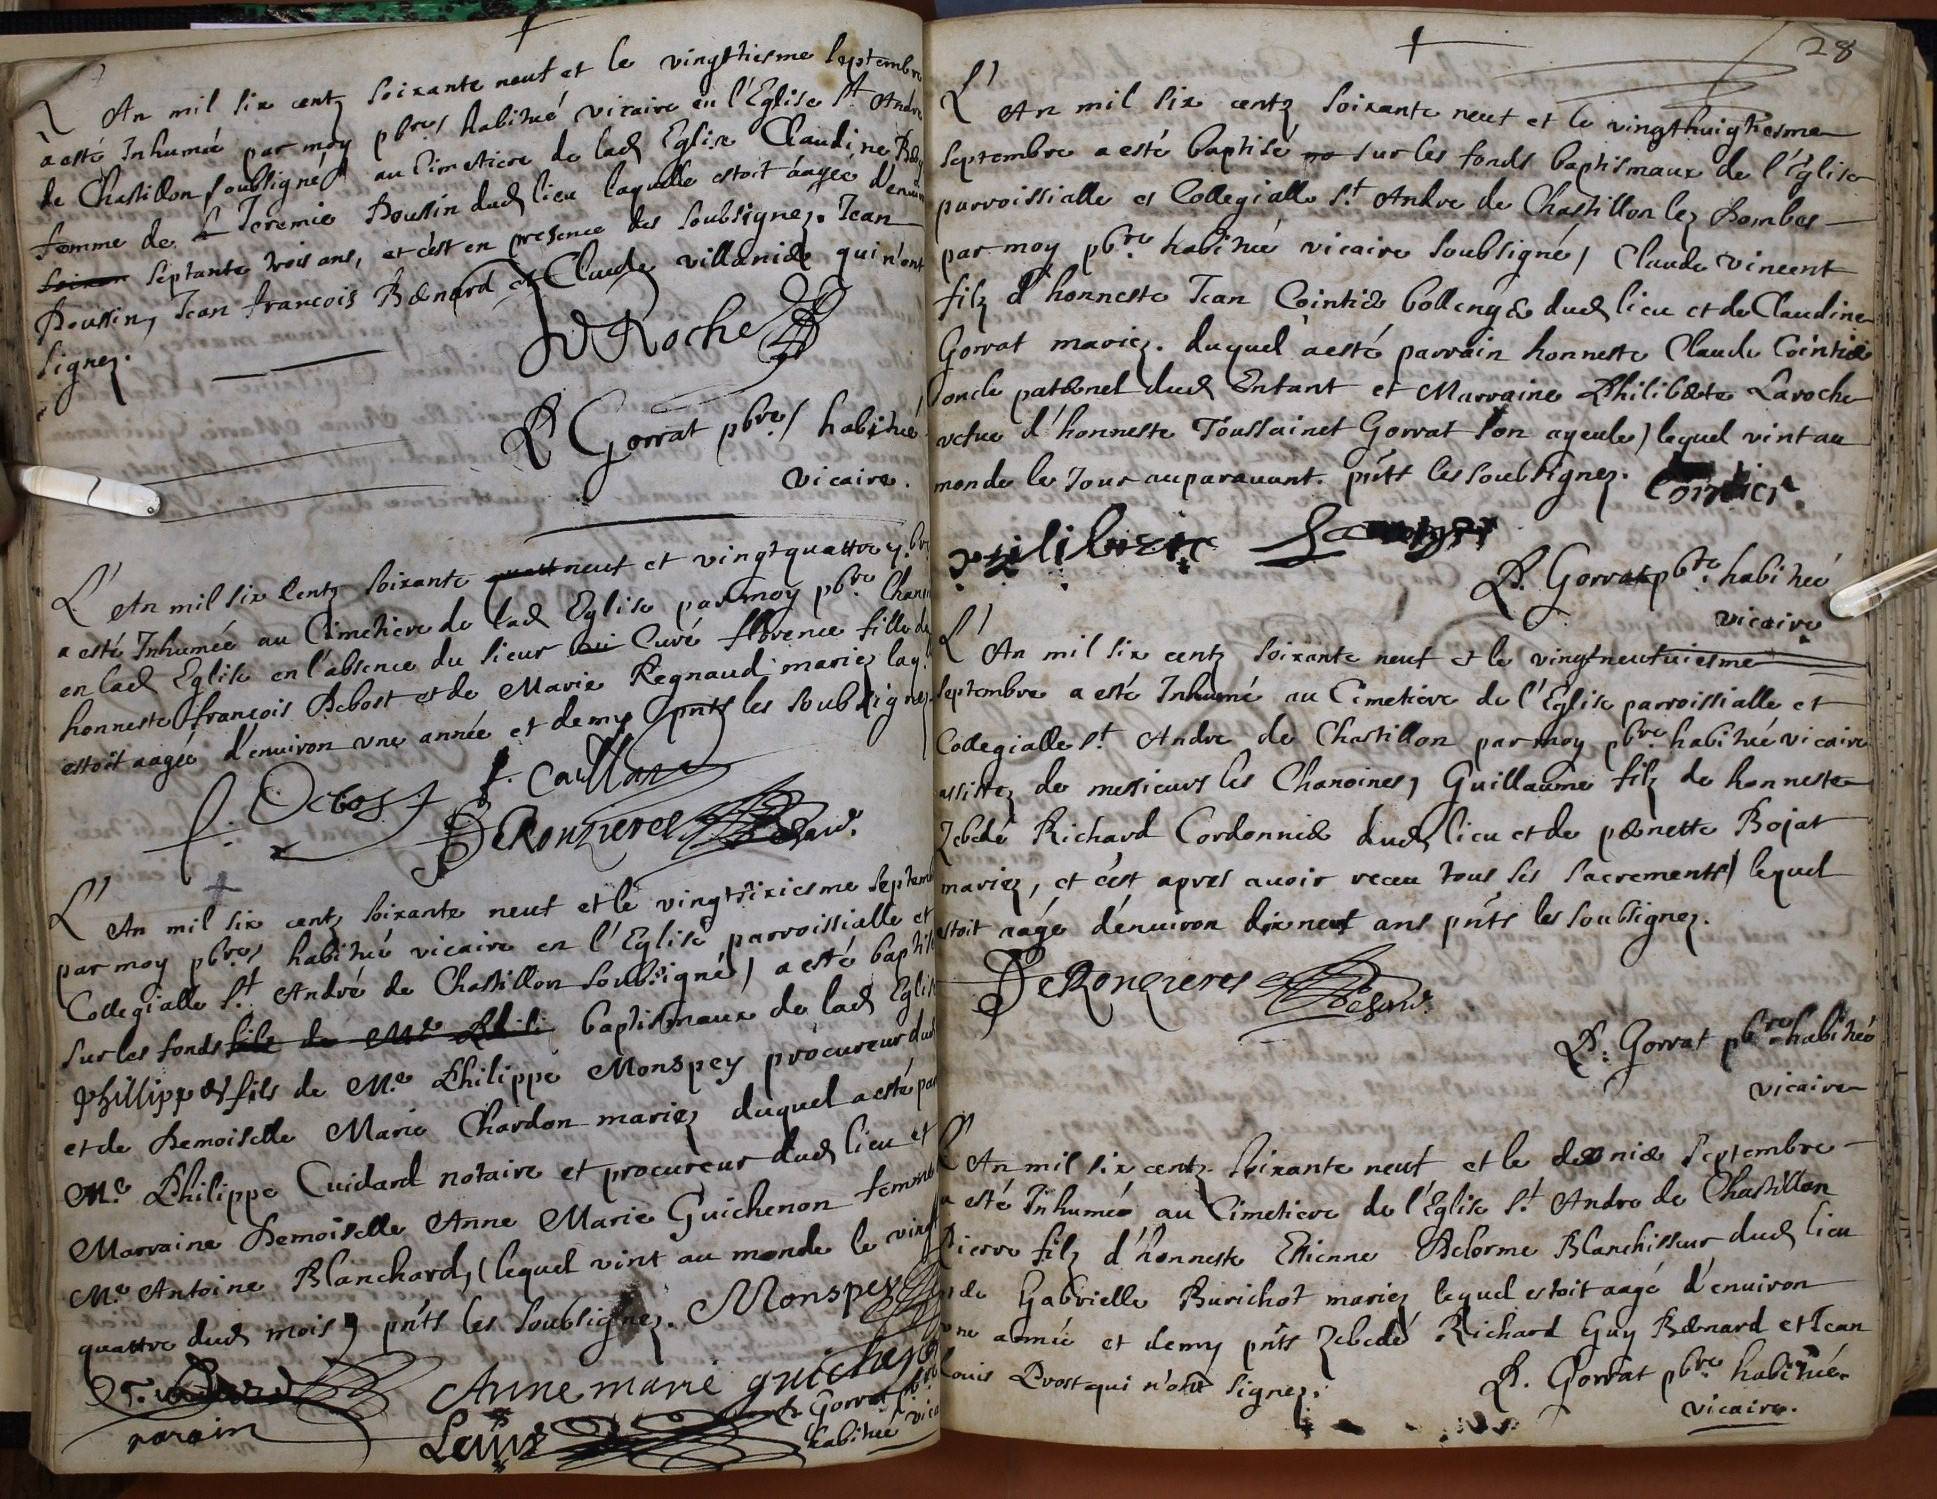 L'An mil six centz soixante neuf et le vingthiesme septembre
a esté Inhumée par moy pbre habitué vicaire en l'Eglise St André
de Chastillon soubsigné au Cimetiere de lad Eglise Claudine
femme de Jeremie Doussin dud lieu laquelle estoit áagée d'enuiron
soixan septante trois ans, et c'est en presence des soubsignez. Jean
Doussin, Jean françois Bernard et Claude villanier qui n'ont
signez.
Roche
P Gorrat pbre habitué
vicaire.
L'An mil six Centz soixante quatt neuf et vingt quattre 7.bre
a esté Inhumée au Cimetiere de lad Eglise par moy pbre Chanoine
en lad Eglise en l'absence du sieur Curé florence fille de
honneste françois Debost et de Marie Regnaud mariez laq.
estoit aagée d'enuiron vne année et demy pnts les soubsignez
f. Debost f. Caillan
DeRonzieres
L'An mil six centz soixante neuf et le vingtsixiesme septembre
par moy pbre habitué vicaire en l'Eglise parroissialle et
Collegialle St André de Chastillon soubsigné, a esté baptisé
sur les fonds filz de Me Phili baptismaux de lad Eglise
Phillippes fils de Me Philippe Monspey procureur dud
et de Demoiselle Marie Chardon mariez duquel a esté par
Me Philippe Cuidard notaire et procureur dud lieu et
Marraine Demoiselle Anne Marie Guichenon femme
Me Antoine Blanchard, (lequel vint au monde le vingt
quattre dud mois) pnts les soubsignez. Monspey
Anne marie guichenon
parain P. Gorrat pbre
habitué vicaire
28
L'An mil six centz soixante neuf et le vingthuigtiesme
septembre a esté baptisé sur les fonds baptismaux de l'Eglise
parroissialle et Collegialle St Andre de Chastillon lez Dombes
par moy pbre habitué vicaire soubsigné, Claude vincent
filz d'honneste Jean Cointier bollenger dud lieu et de Claudine
Gorrat mariez. duquel a esté parrain honneste Claude Cointier
oncle paternel dud Enfant et Marraine Philiberte Laroche
vefue d'honneste Toussainct Gorrat son ayeule) lequel vint au
monde le Jour auparauant. pnts les soubsignez. Cointier
P. Gorrat pbre habitué
vicaire
L'An mil six centz soixante neuf et le vingtneufuiesme
septembre a esté Inhumé au Cimetiere de l'Eglise parroissialle et
Collegialle St Andre de Chastillon par moy pbre habitué vicaire
assistez de messieurs les Chanoines, Guillaume filz de honneste
Zebedé Richard Cordonnier dud lieu et de pernette Bojat
mariez, et c'est apres auoir receu tous ses sacrements) lequel
estoit aagé d'enuiron dixneuf ans pnts les soubsignez.
DeRonzieres
P. Gorrat pbre habitué
vicaire
L'An mil six centz soixante neuf et le dernier septembre
a esté Inhumé au Cimetiere de l'Eglise St Andre de Chastillon
Pierre filz d'honneste Estienne Delorme Blanchisseur dud lieu
et de Gabrielle Burichot mariez lequel estoit aagé d'enuiron
vne année et demy pnts Zebedé Richard Guy Bernard et Jean
Louis Prost qui n'ont signez.
P. Gorrat pbre habitué
vicaire.